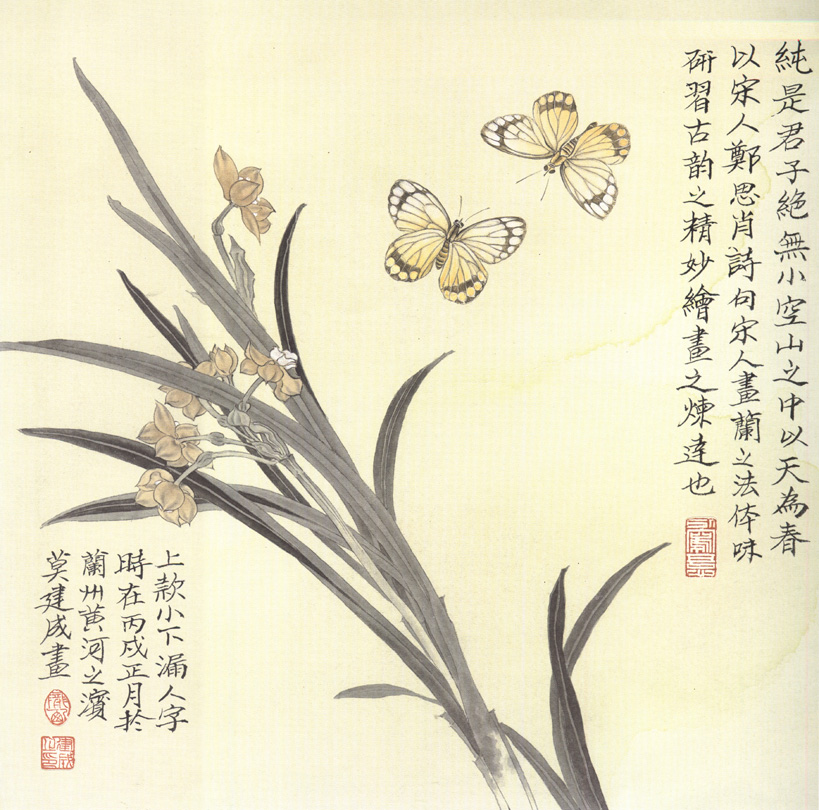 純是君子絶無小空山之中以天為春
以宋人鄭思肖詩句宋人畫蘭之法体味
研習古韵之精妙繪畫之煉達也
上款小下漏人字
時在丙戌正月於
蘭州黄河之濱
莫建成畫